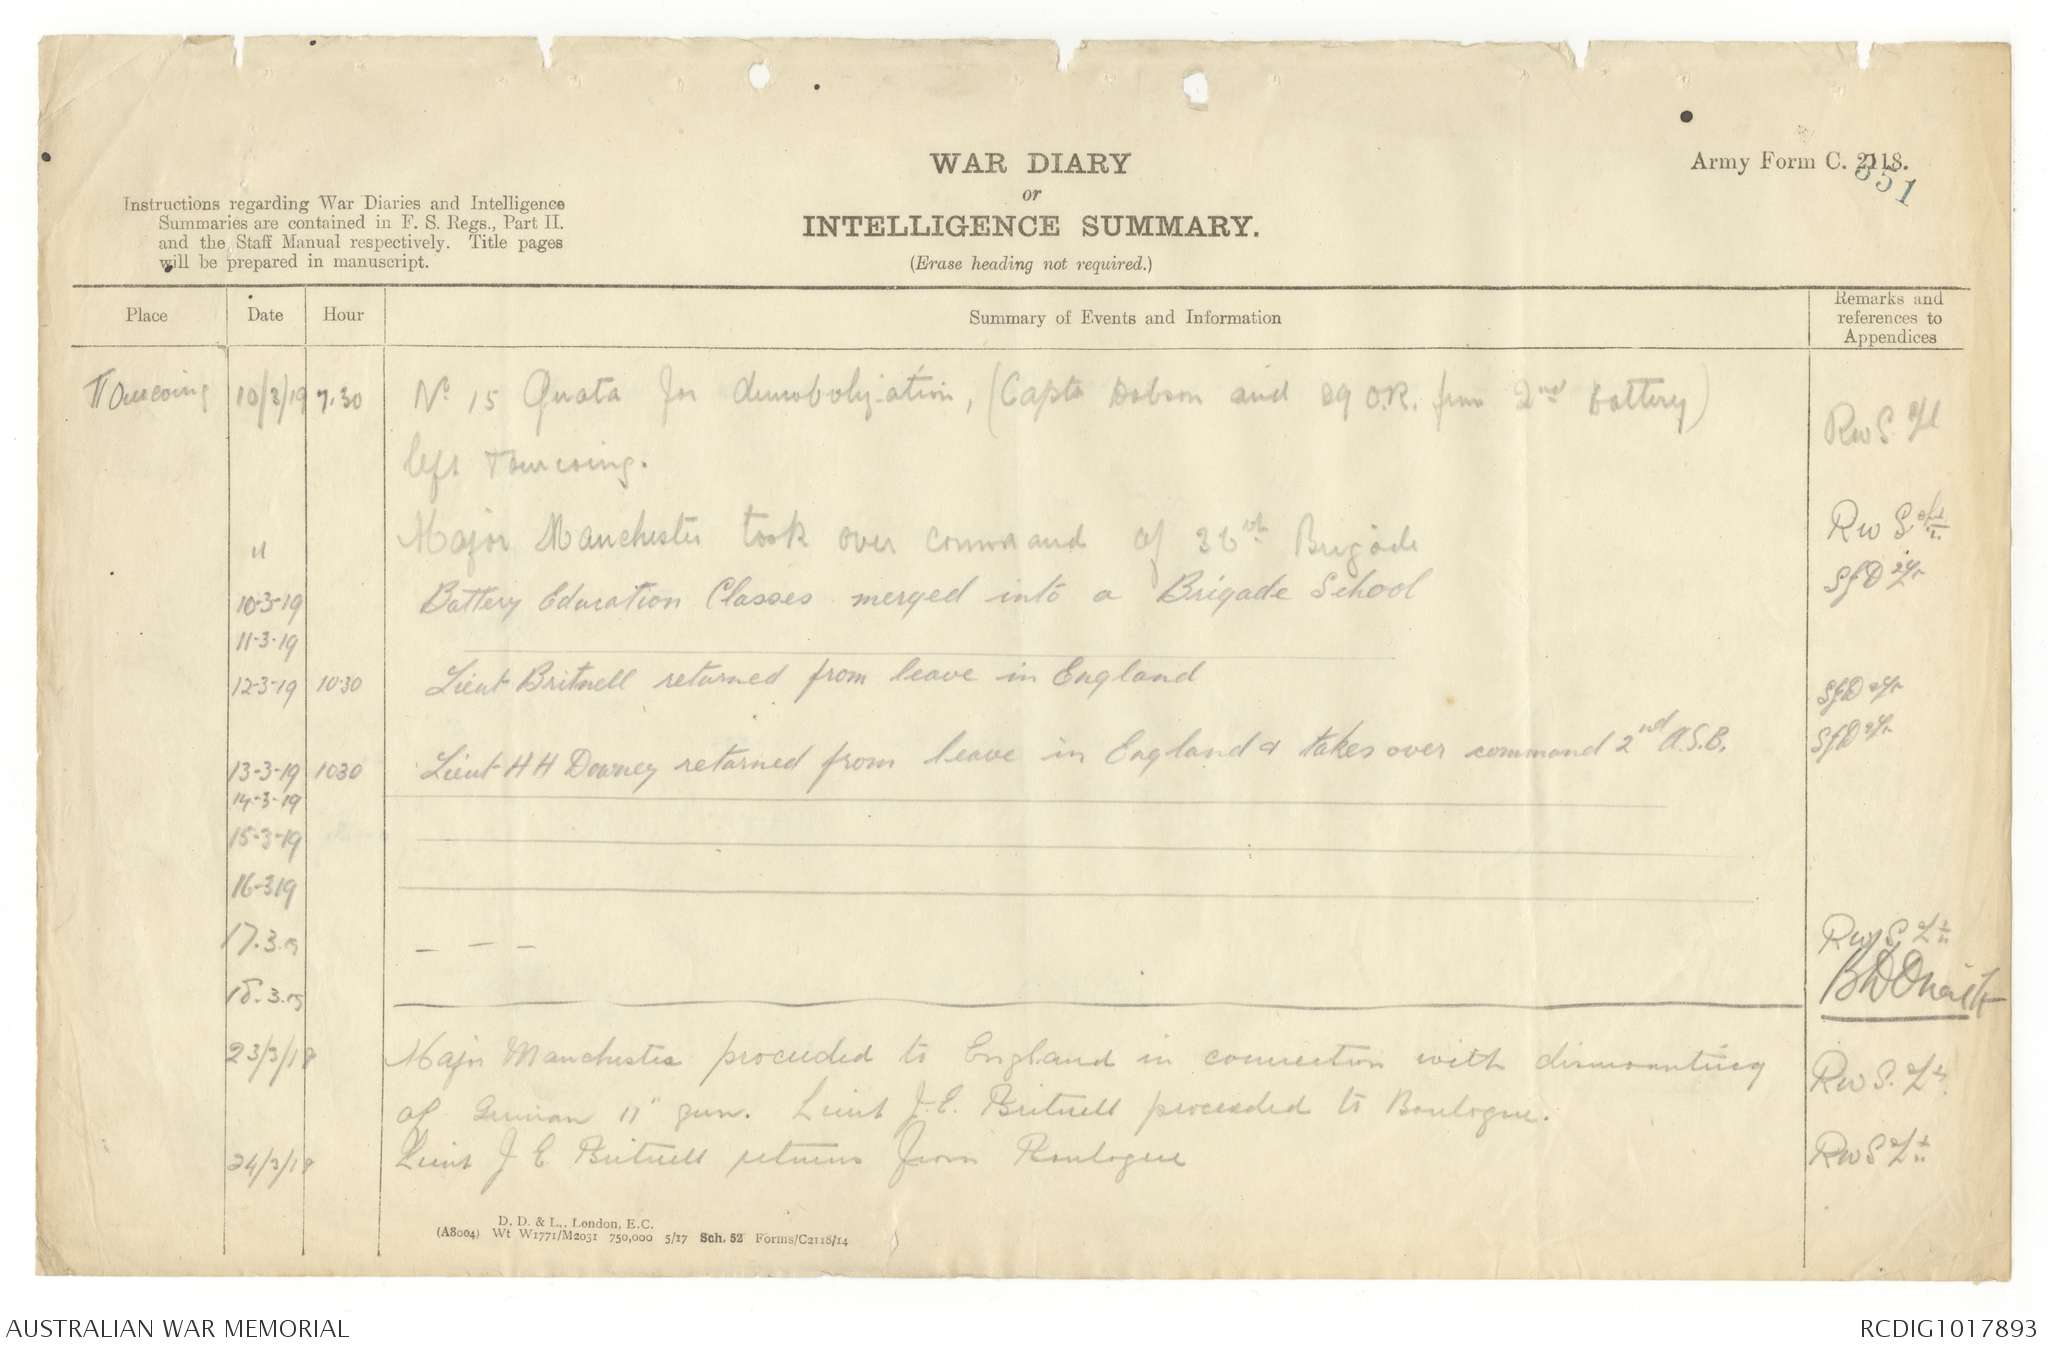 WAR DIARY
or
INTELLIGENCE SUMMARY.
(Erase heading not required.)
Army Form C. 2118.
351
Instructions regarding War Diaries and Intelligence
Summaries are contained in F. S. Regs., Part II.
and the Staff Manual respectively. Title pages
will be prepared in manuscript.
Place Date Hour Summary of Events and Information Remarks and references to Appendices
Tourcoing 10/3/19 7.30 No 15 Quota for demobolization, (Capts Dobson and 29 O.R. from 2nd Battery) RWS Lt
left Tourcoing.
" Major Manchester took over command of 36th Brigade RWS Lt
10-3-19 Battery Education Classes merged into a Brigade School SJD Lt
11-3-19
12-3-19 10.30 Lieut Britnell returned from leave in England SJD Lt
13-3-19 1030 Lieut H H Downey returned from leave in England & takes over command 2nd A.S.B. SJD Lt
14-3-19
15-3-19
16-3-19
17.3.19 — — — RWS Lt
18.3.19
23/3/19 Major Manchester proceeded to England in connection with dismounting RWS. Lt
of German 11" gun. Lieut J.E. Britnell proceeded to Boulogne.
24/3/19 Lieut J E Britnell returns from Boulogne RWS Lt
D. D. & L., London, E.C.
(A8004) Wt W1771/M2031 750,000 5/17 Sch. 52 Forms/C2118/14
AUSTRALIAN WAR MEMORIAL
RCDIG1017893